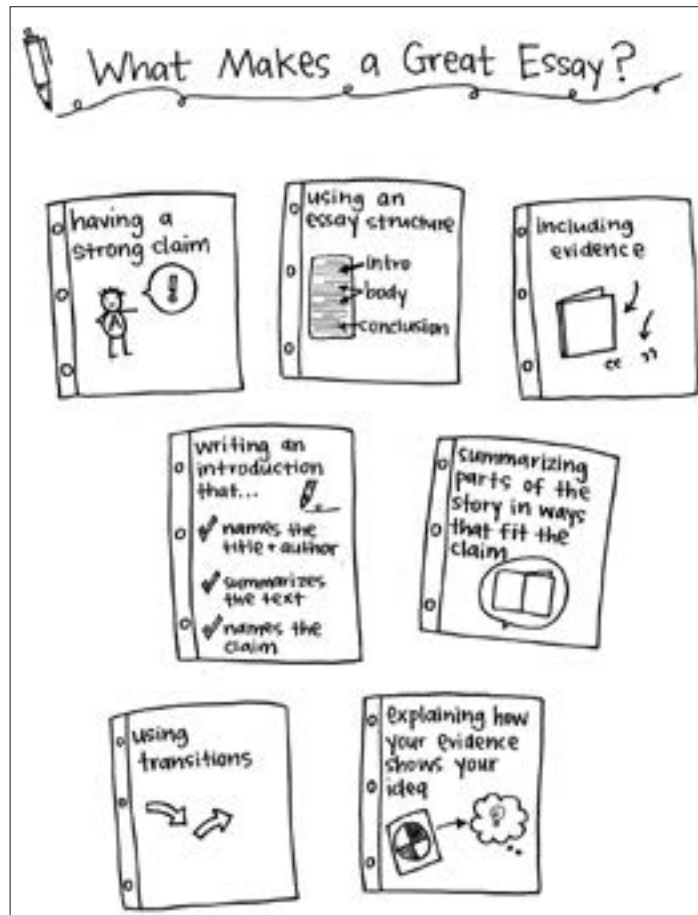 What Makes a Great Essay?
having a
strong claim
!
A
using an
essay structure
intro
body
conclusion
including
evidence
“ ”
writing an
introduction
that...
names the
title + author
summarizes
the text
names the
claim
summarizing
parts of the
story in ways
that fit the
claim
using
transitions
explaining how
your evidence
shows your
idea